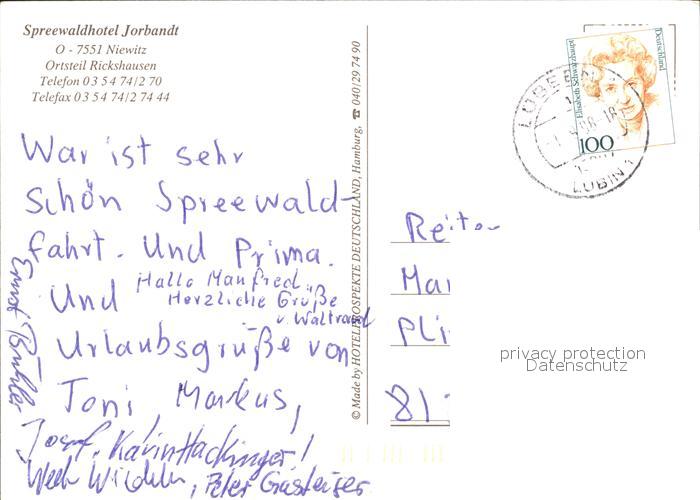 Spreewaldhotel Jorbandt
O - 7551 Niewitz
Ortsteil Rickshausen
Telefon 03 54 74/2 70
Telefax 03 54 74/2 74 44
War ist sehr
schön Spreewald-
fahrt. Und Prima.
Hallo Manfred.
Und Herzliche Grüße
v. Waltraud
Urlaubsgrüße von
Toni, Markus,
Josef, Karin Hackinger!
Peter Gasteiger
Ernst
© Made by HOTELPROSPEKTE DEUTSCHLAND, Hamburg, ☎ 040/29 74 90
Deutschland
Elisabeth Schwarzhaupt
100
LÜBBEN
LUBIN
Reite
Mar
Pli
81
privacy protection
Datenschutz